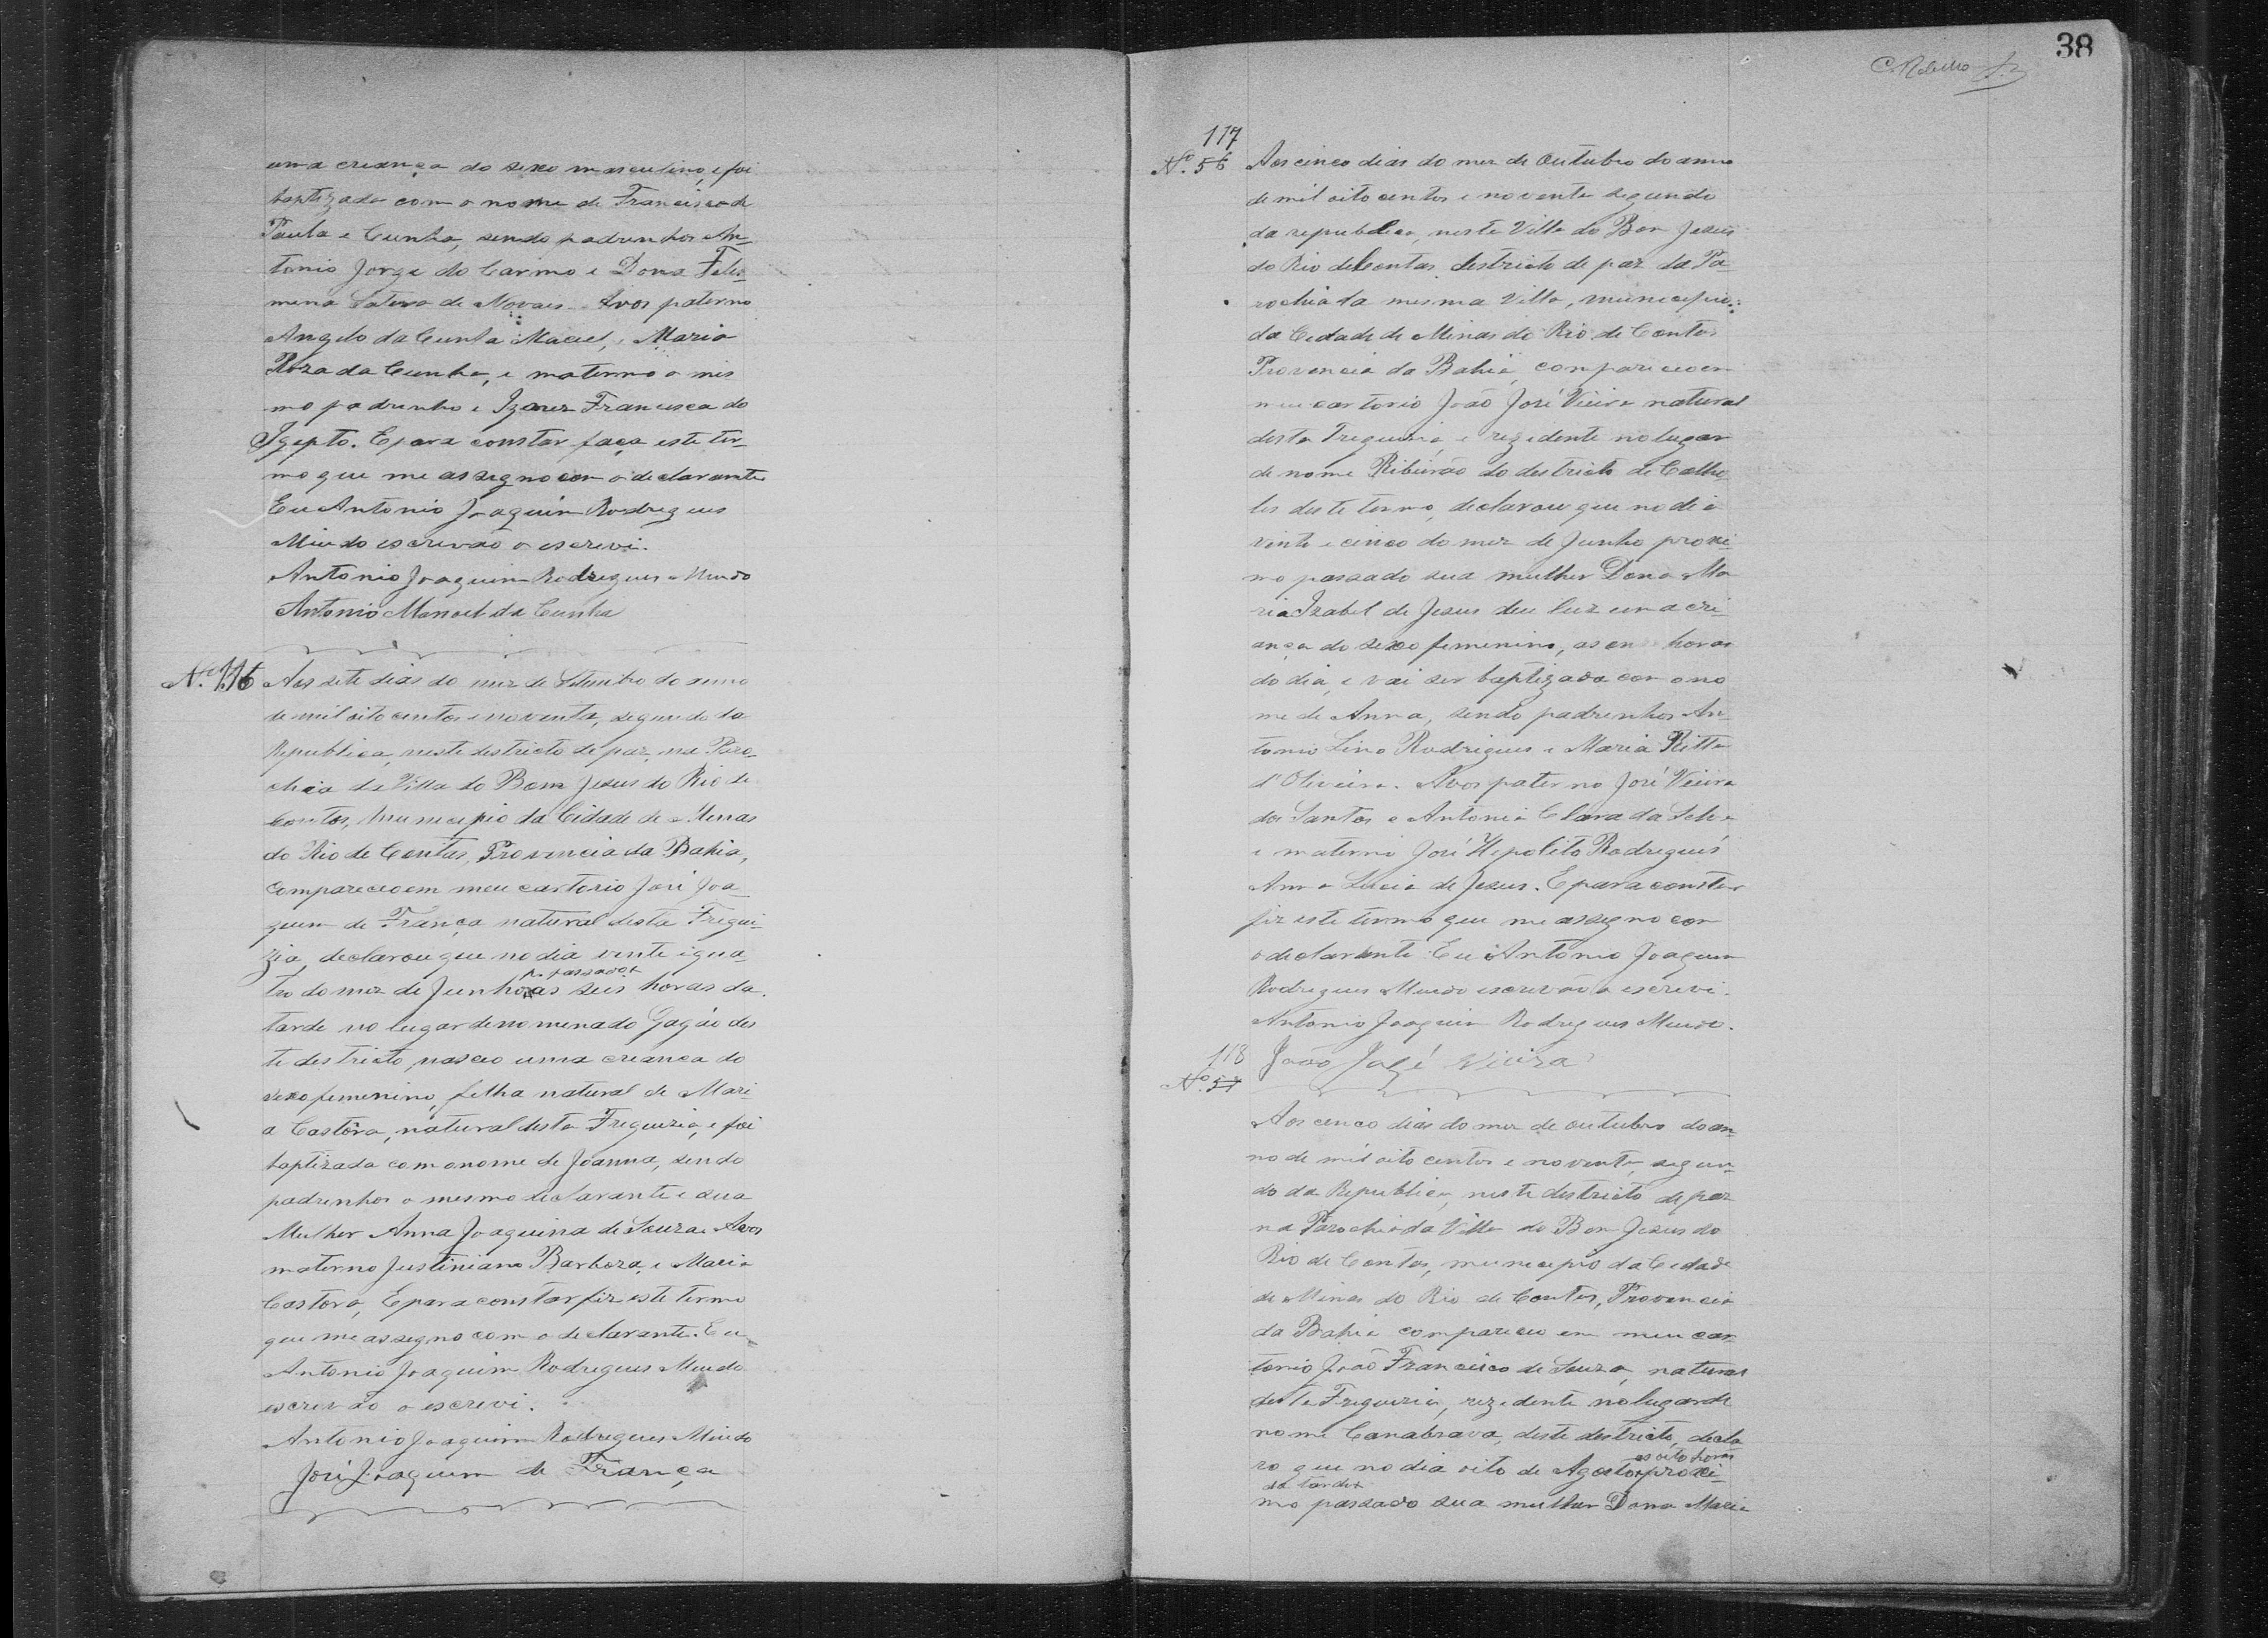 uma creança do sexo masculino, e foi
baptizada com o nome de Francisco de
Paula e Cunha, sendo padrinhos An-
tonio Jorge do Carmo e Dona Felis-
mena de Novaes. Avos paterno
Angelo da Cunha Maciel, e Maria
Roza da Cunha, e materno o mes
mo padrinho e Ignez Francisca do
Egepto. E para constar faço este ter-
mo que me assegno com o declarante
Eu Antonio Joaquim Rodrigues
Miudo escrevão o escrevi.
Antonio Joaquim Rodrigues Miudo
Antonio Manoel da Cunha
Nº. 116 Aos sete dias do mez de Setembro do anno
de mil oito centos e noventa, segundo da
Republica, neste destricto de paz, na Paro-
chia da Villa do Bom Jesus do Rio de
Contas, Municipio da Cidade de Minas
do Rio de Contas, Provincia da Bahia,
compareceo em meu cartorio José Joa
quim de França natural desta Fregui-
zia, declarou que no dia vente e qua-
p. passado
tro do mez de Junho as seis horas da
tarde no lugar denomenado Gagáo des
te destricto, nasceo uma creanca do
sexo femenino, felha natural de Mari
a Castôra, natural desta Freguezia, e foi
baptizada com o nome de Joanna, sendo
padrinhos o mesmo declarante e sua
Mulher Anna Joaquina de Souza. Avos
materno Justiniano Barboza, e Maria
Castora, E para constar fiz este termo
que me assegno com o declarante. Eu
Antonio Joaquim Rodrigues Miudo
escrevão o escrevi.
Antonio Joaquim Rodrigues Miudo
José Joaquim de França
38
117
Nº. 56 Aos cinco dias do mez de Outubro do anno
de mil oito centos e noventa segundo
da republica, neste Villa do Bom Jesus
do Rio de Contas, destricto de paz da Pa
rochia da mesma Villa, municipio
da Cedade de Minas do Rio de Contas
Provencia da Bahia, compareceo em
meu cartorio João José Vieira natural
desta Freguezia, e rezedente no lugar
de nome Ribeirão do destricto de Catho
les deste termo, declarou que no dia
vinte e cinco do mez de Junho proxi-
mo passado sua mulher Dona Ma
ria Izabel de Jesus deu luz uma cri-
ança do sexo femenino, as horas
do dia, e vai ser baptizada com o no
me de Anna, sendo padrinhos An-
tonio Lino Rodrigues e Maria Ritta
d'Oliveira. Avos paterno José Vieira
dos Santos e Antonia Clara da Selva
e materno José Hepolito Rodrigues
Anna Lucia de Jesus. E para constar
fiz este termo que me assegno com
o declarante. Eu Antonio Joaquim
Rodrigues Miudo escrevão o escrevi.
Antonio Joaquim Rodrigues Miudo.
118 João Jozé Vieira
Nº. 57
Aos cenco dias do mez de outubro do an-
no de mil oito centos e noventa, segun-
do da Republica, neste destricto de paz
na Parochia da Villa do Bom Jesus do
Rio de Contas, municipio da Cedade
de Minas do Rio de Contas, Provencia
da Bahia compareceu em meu car
torio João Francisco de Souza, natural
desta Freguezia, rezedente no lugar de
nome Canabrava, deste destricto, decla
as oito horas
ro que no dia oito de Agosto proxi-
da tarde
mo passado sua mulher Dona Maria